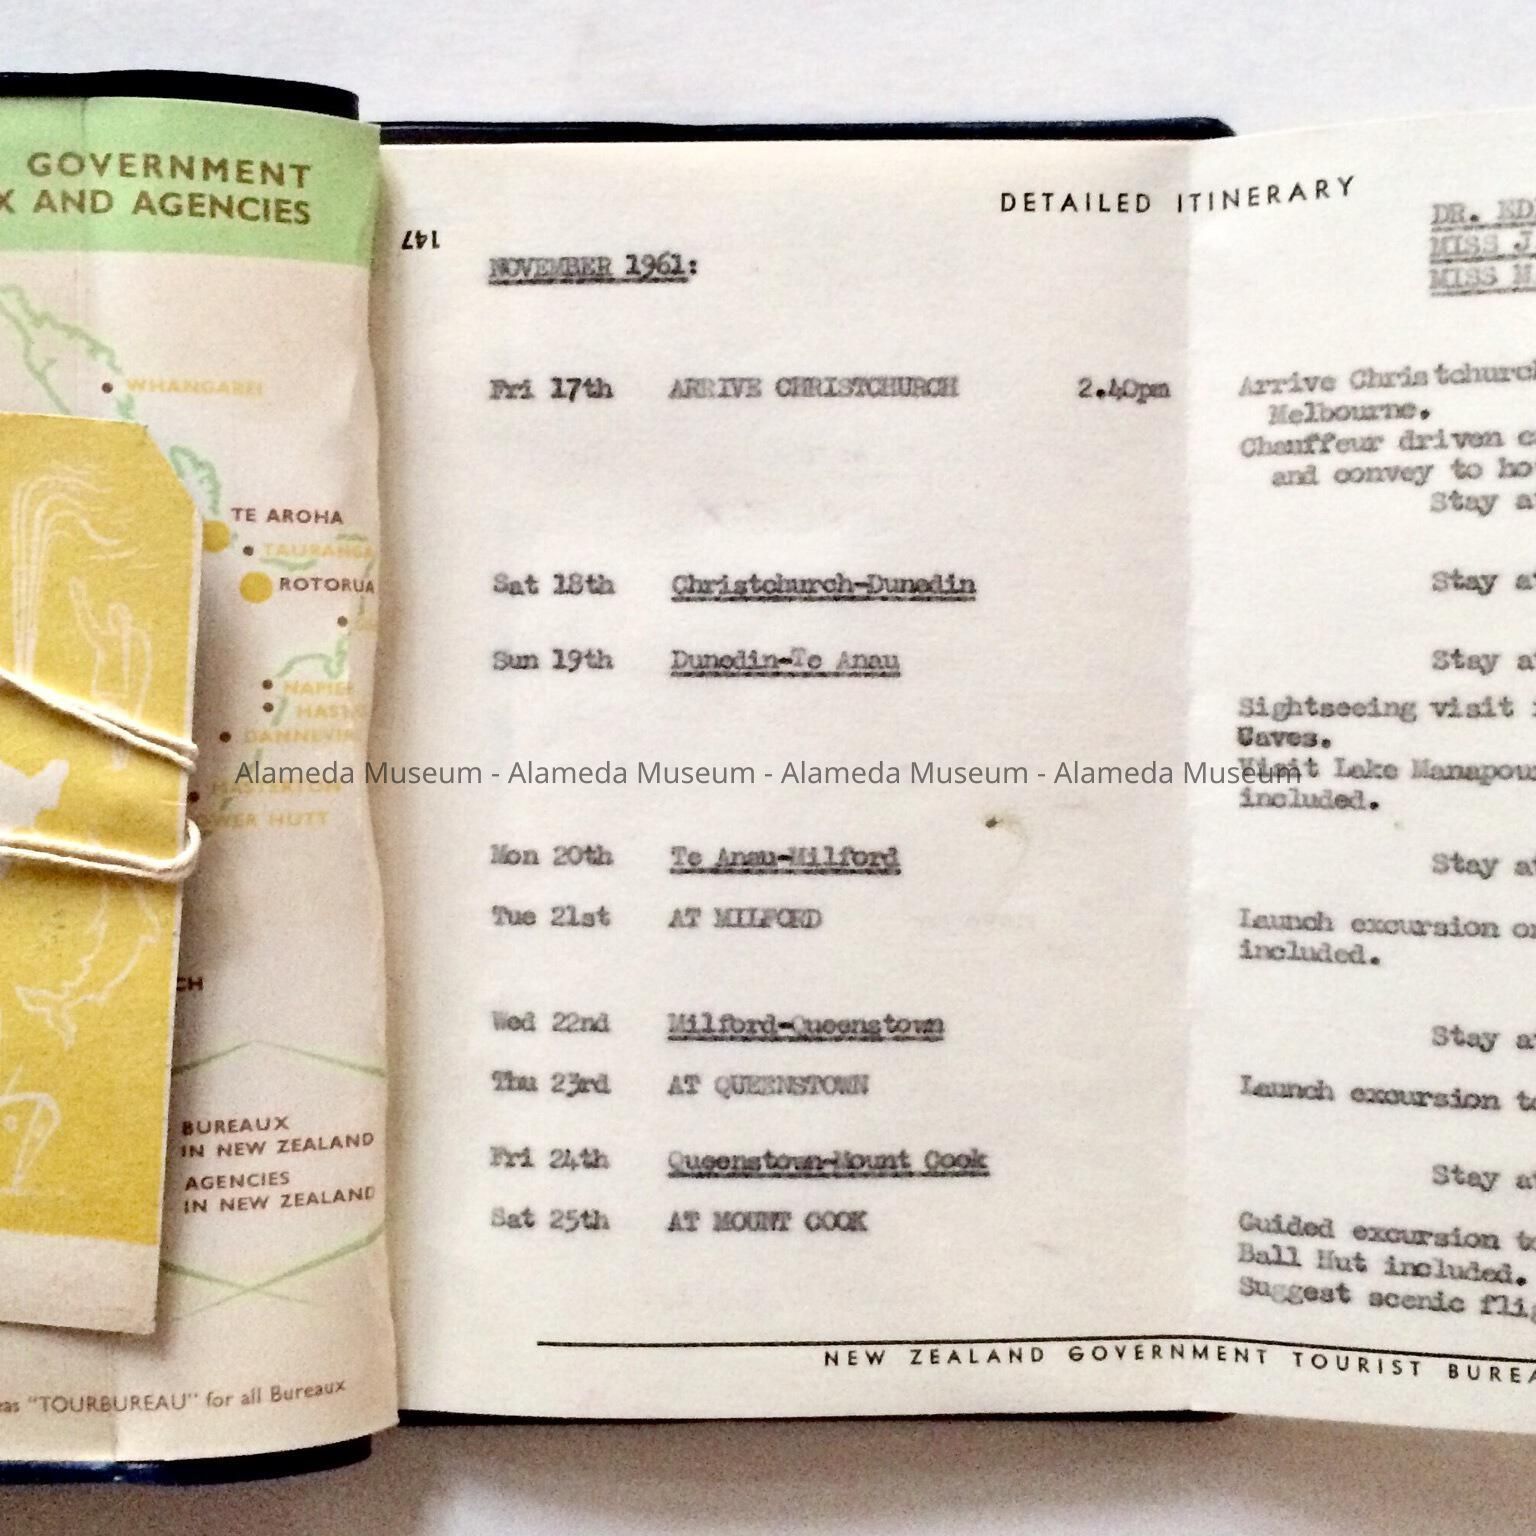 GOVERNMENT
X AND AGENCIES
WHANGAREI
TE AROHA
TAURANGA
ROTORUA
NAPIE
HAST
DANNEVIR
MASTERTON
OWER HUTT
CH
BUREAUX
IN NEW ZEALAND
AGENCIES
IN NEW ZEALAND
eas "TOURBUREAU" for all Bureaux
147
DETAILED ITINERARY
DR. ED
MISS J
MISS M
NOVEMBER 1961:
Fri 17th ARRIVE CHRISTCHURCH 2.40pm Arrive Christchurch
Melbourne.
Chauffeur driven ca
and convey to ho
Stay a
Sat 18th Christchurch-Dunedin Stay a
Sun 19th Dunedin-Te Anau Stay a
Sightseeing visit
Caves.
Alameda Museum - Alameda Museum - Alameda Museum - Alameda Museum
Visit Lake Manapour
included.
Mon 20th Te Anau-Milford Stay a
Tue 21st AT MILFORD Launch excursion o
included.
Wed 22nd Milford-Queenstown Stay a
Thu 23rd AT QUEENSTOWN Launch excursion to
Fri 24th Queenstown-Mount Cook Stay a
Sat 25th AT MOUNT COOK Guided excursion to
Ball Hut included.
Suggest scenic flig
NEW ZEALAND GOVERNMENT TOURIST BUREA